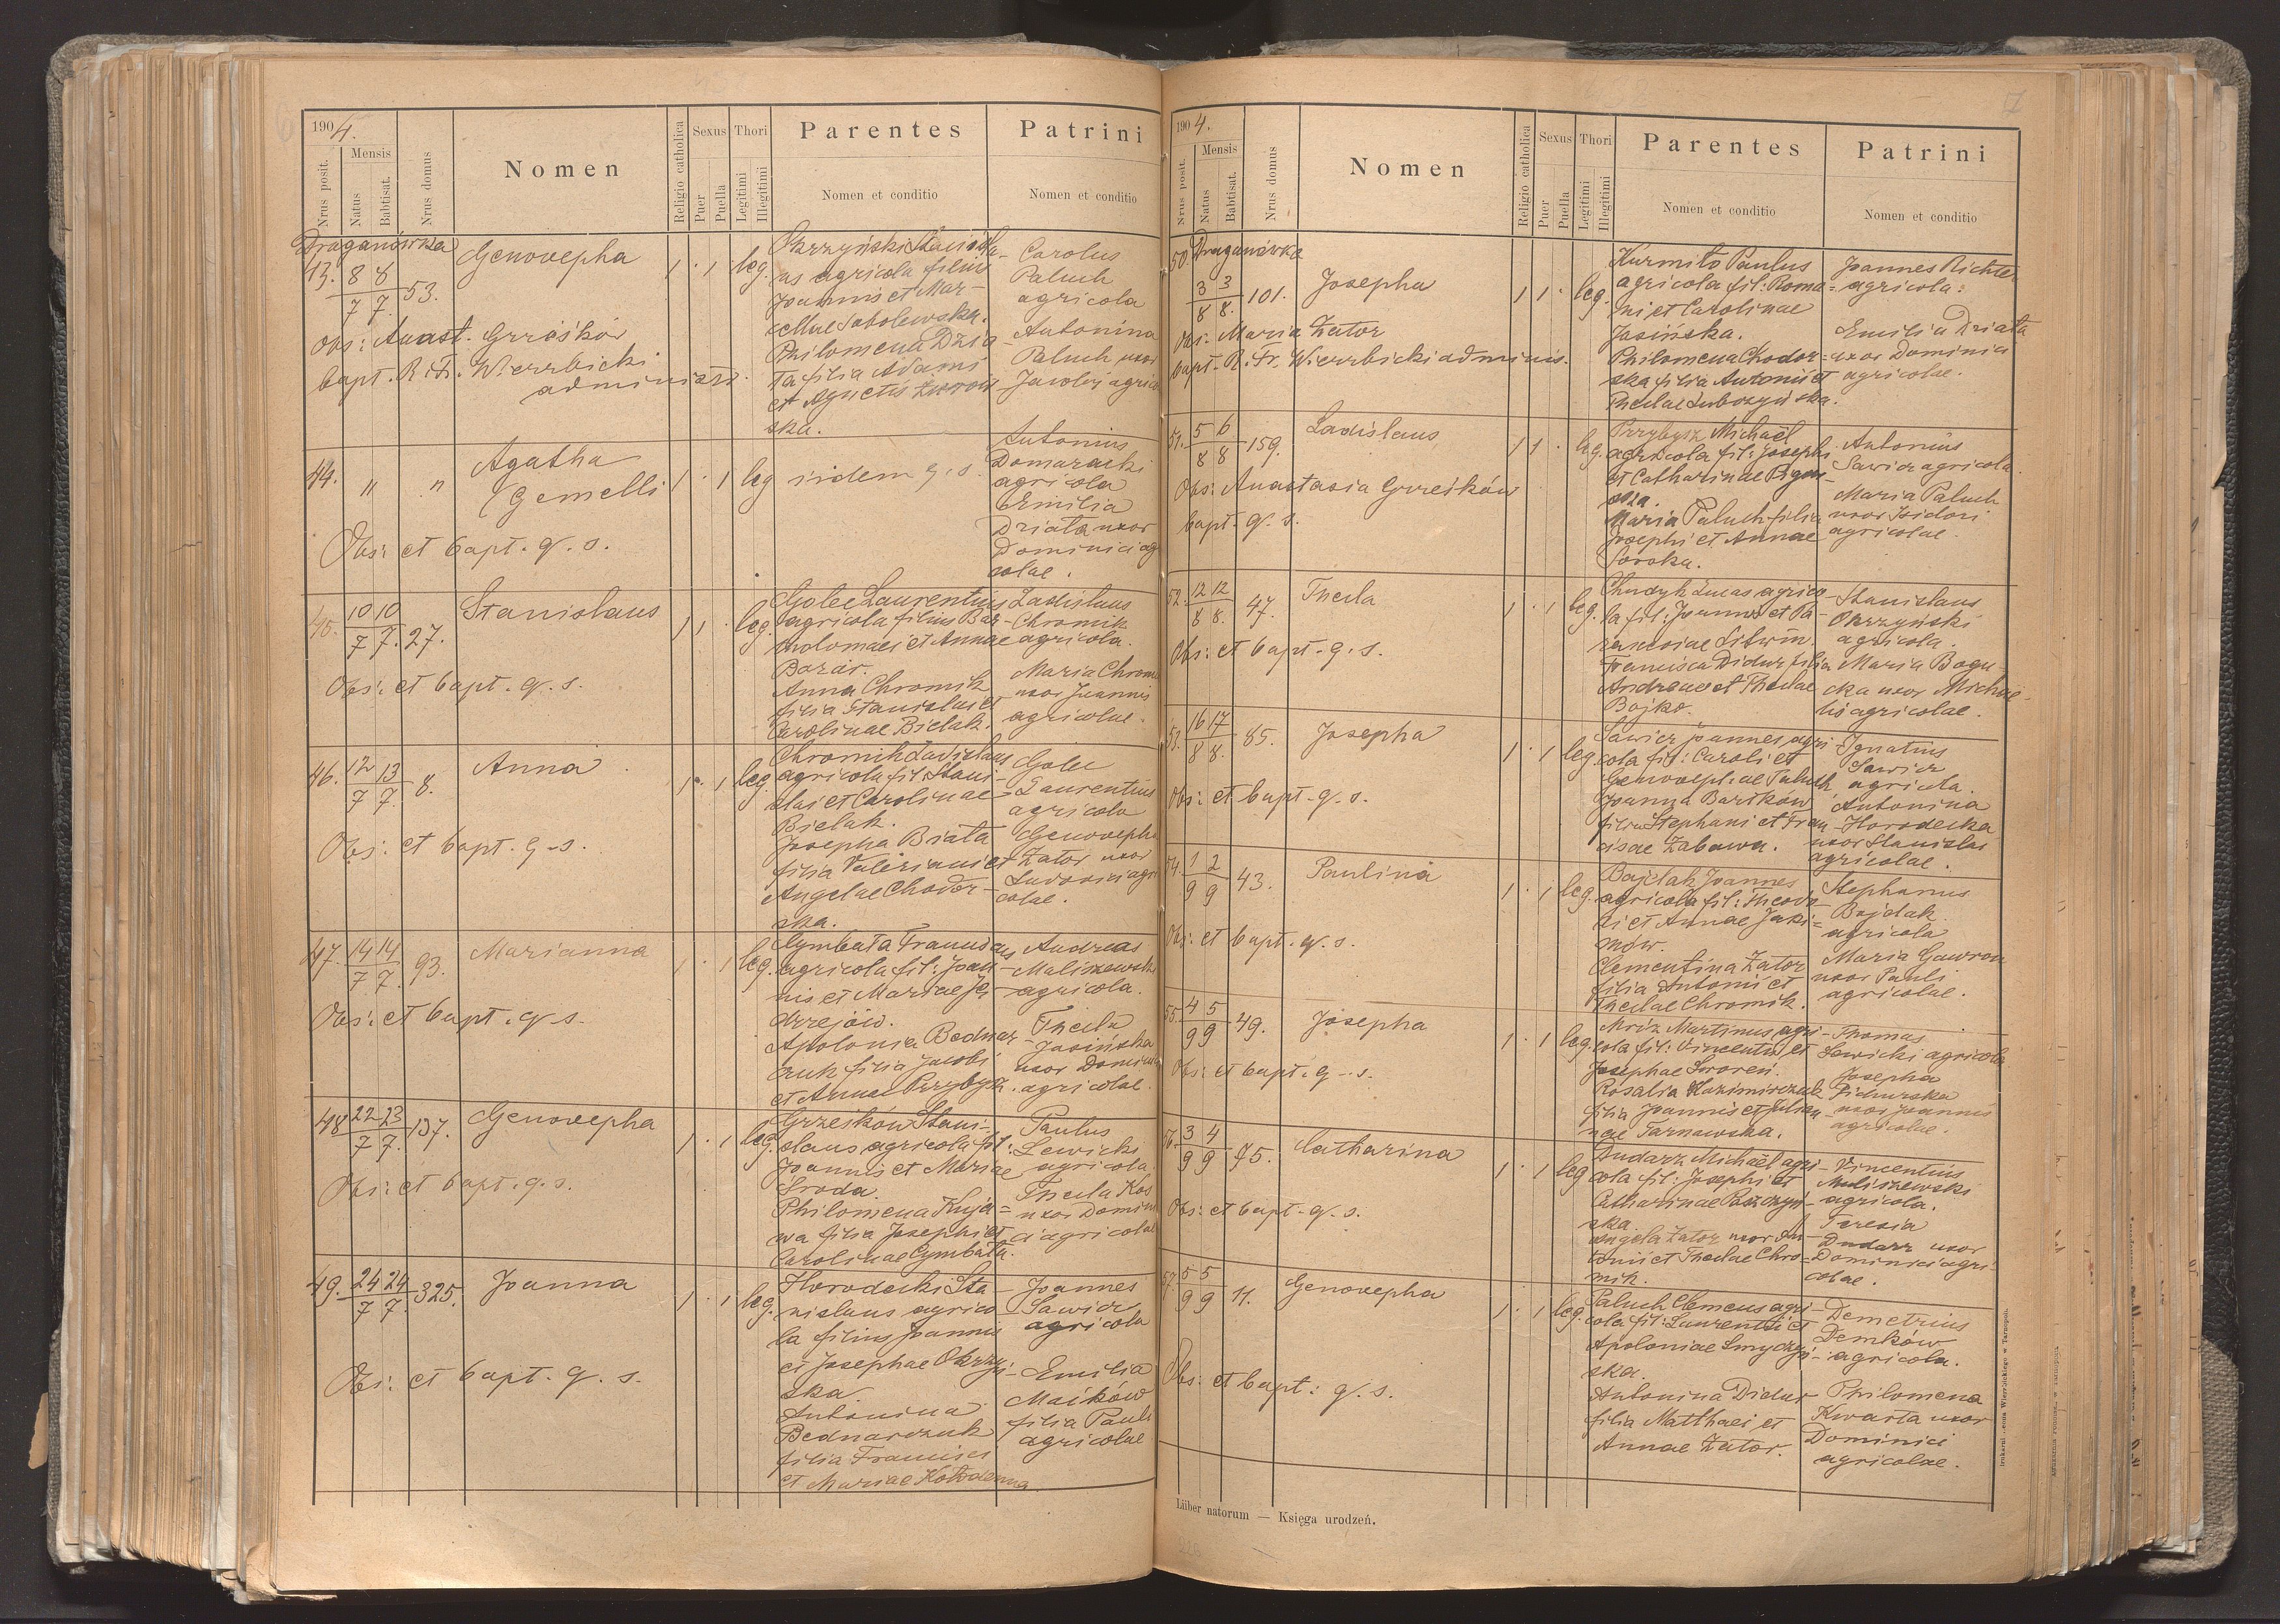 1904.
Nrus posit.
Mensis
Natus
Babtisat.
Nrus domus
Nomen
Religio catholica
Sexus
Puer
Puella
Thori
Legitimi
Illegitimi
Parentes
Nomen et conditio
Patrini
Nomen et conditio
Draganówka
43. 8/7 8/7. 53.
Genovepha
1 · 1 leg.
Okrzyński Stanisla-
us agricola filius
Joannis et Mar-
cellae Sobolewska.
Philomena Dzia-
ta filia Adami
et Agnetis
ska.
Carolus
Paluch
agricola
Antonina
Paluch uxor
Jacobi agrico
Obs: Anast. Grześków
bapt. R. Fr. Wierzbicki
administr.
44. " "
Agatha
(Gemelli
1 · 1 leg
iidem q. s.
Antonius
Domaracki
agricola
Emilia
Dziata uxor
Dominici ag
colae.
Obs: et bapt. q. s.
45. 10/7 10/7. 27.
Stanislaus
1 1 · leg.
Golec Laurentius
agricola filius Bar-
tholomaei et Annae
Bazár.
Anna Chromik
filia Stanislai et
Carolinae Bielak.
Ladislaus
Chromik
agricola.
Maria Chrom
uxor Joannis
agricolae.
Obs: et bapt. q. s.
46. 12/7 13/7. 8.
Anna
1 · 1 leg.
Chromik Ladislaus
agricola fil. Stani-
slai et Carolinae
Bielak.
Josepha Biata
filia Valeriani et
Angelae Chodor-
ska.
Golec
Laurentius
agricola
Genovepha
Zator uxor
Ludovici agri
colae.
Obs: et bapt. q. s.
47. 14/7 14/7. 93.
Marianna
1 · 1 leg.
Cymbata Franciscus
agricola fil: Joan-
nis et Mariae Je-
drzejów.
Apolonia Bednar-
czuk filia Jacobi
et Annae Przybysz.
Andreas
Maliszewski
agricola.
Thecla
Jasińska
uxor Dominici
agricolae.
Obs: et bapt. q. s.
48 22/7 23/7. 137.
Genovepha
1 · 1 leg.
Grześków Stani-
slaus agricola fil:
Joannis et Mariae
Sroda.
Philomena Kuja=
wa filia Josephi et
Carolinae Cymbata.
Paulus
Lewicki
agricola
Thecla Kos
uxor Domini
ci agricolae
Obs: et bapt. q. s.
49. 24/7 24/7. 325.
Joanna
1 · 1 leg.
Horodecki Sta-
nislaus agrico
la filius Joannis
et Josephae Okrzyń-
ska
Antonina
Bednarczuk
filia Francisci
et Mariae
Joannes
Sawicz
agricola
Emilia
Maików
filia Pauli
agricolae
Obs: et bapt. q. s.
17
1904.
Nrus posit.
Mensis
Natus
Babtisat.
Nrus domus
Nomen
Religio catholica
Sexus
Puer
Puella
Thori
Legitimi
Illegitimi
Parentes
Nomen et conditio
Patrini
Nomen et conditio
50. Draganówka
3/8 3/8. 101.
Josepha
1 1 · leg.
Kurmito Paulus
agricola fil: Roma=
ni et Carolinae
Jasińska.
Philomena Chodor=
ska filia Antonii et
Theclae Luboszyńska.
Joannes Richter
agricola:
Emilia Dziata
uxor Dominici
agricolae.
Obs: Maria Zator
bapt. R. Fr. Wierzbicki adminis.
51. 5/8 6/8 159.
Ladislaus
1 1 · leg.
Przybysz Michaël
agricola fil: Josephi
et Catharinae
Maria Paluch filia
Josephi et Annae
Soroka.
Antonius
Sawicz agricola.
Maria Paluch
uxor Isidori
agricolae.
Obs: Anastasia Grześków
bapt. q. s.
52. 12/8 12/8. 47.
Thecla
1 · 1 leg.
Chudyk Lucas agrico-
la fil: Joannis et Pa-
rasceviae Litwin
Francisca Didur filia
Andreae et Theclae
Bojko.
Stanislaus
Okrzyński
agricola.
Maria Bogu-
cka uxor Michae-
lis agricolae.
Obs: et bapt. q. s.
53. 16/8 17/8. 85.
Josepha
1 · 1 leg.
Sawicz Joannes agri-
cola fil: Caroli et
Genovephae Paluch
Joanna Barików
filia Stephani et Fran-
cisae Zabawa.
Ignatius
Sawicz
agricola.
Antonina
Horodecka
uxor Stanislai
agricolae.
Obs: et bapt. q. s.
54. 1/9 2/9 43.
Paulina
1 · 1 leg.
Bajdak Joannes
agricola fil: Theodo-
ri et Annae Jaki=
mów.
Clementina Zator
filia Antoni et
Theclae Chromik.
Stephanus
Bajdak
agricola
Maria Gawron
uxor Pauli
agricolae.
Obs: et bapt. q. s.
55. 4/9 5/9 49.
Josepha
1 · 1 leg.
Mróz Martinus agri-
cola fil: Vincentii et
Josephae Sworeń.
Rosalia Kazimirczuk
filia Joannis et Julian-
nae Tarnawska.
Thomas
Lewicki agricola
Josepha
Pichurska
uxor Joannes
agricolae.
Obs: et bapt. q. s.
56. 3/9 4/9 75.
Catharina
1 · 1 leg
Dudarz Michaël agri-
cola fil: Josephi et
Catharinae Paszczyń-
ska.
Angela Zator uxor An-
tonii et Theclae Chro-
mik.
Vincentius
Maliszewski
agricola.
Teresia
Dudarz uxor
Dominici agri
colae.
Obs: et bapt. q. s.
57. 5/9 5/9 11.
Genovepha
1 · 1 leg.
Paluch Clemens agri-
cola fil: Laurentii et
Apoloniae Smyczyń-
ska.
Antonina Didur
filia Matthaei et
Annae Zator.
Demetrius
Demków
agricola.
Philomena
Kwarta uxor
Dominici
agricolae.
Obs: et bapt: q. s.
Liiber natorum — Księga urodzeń.